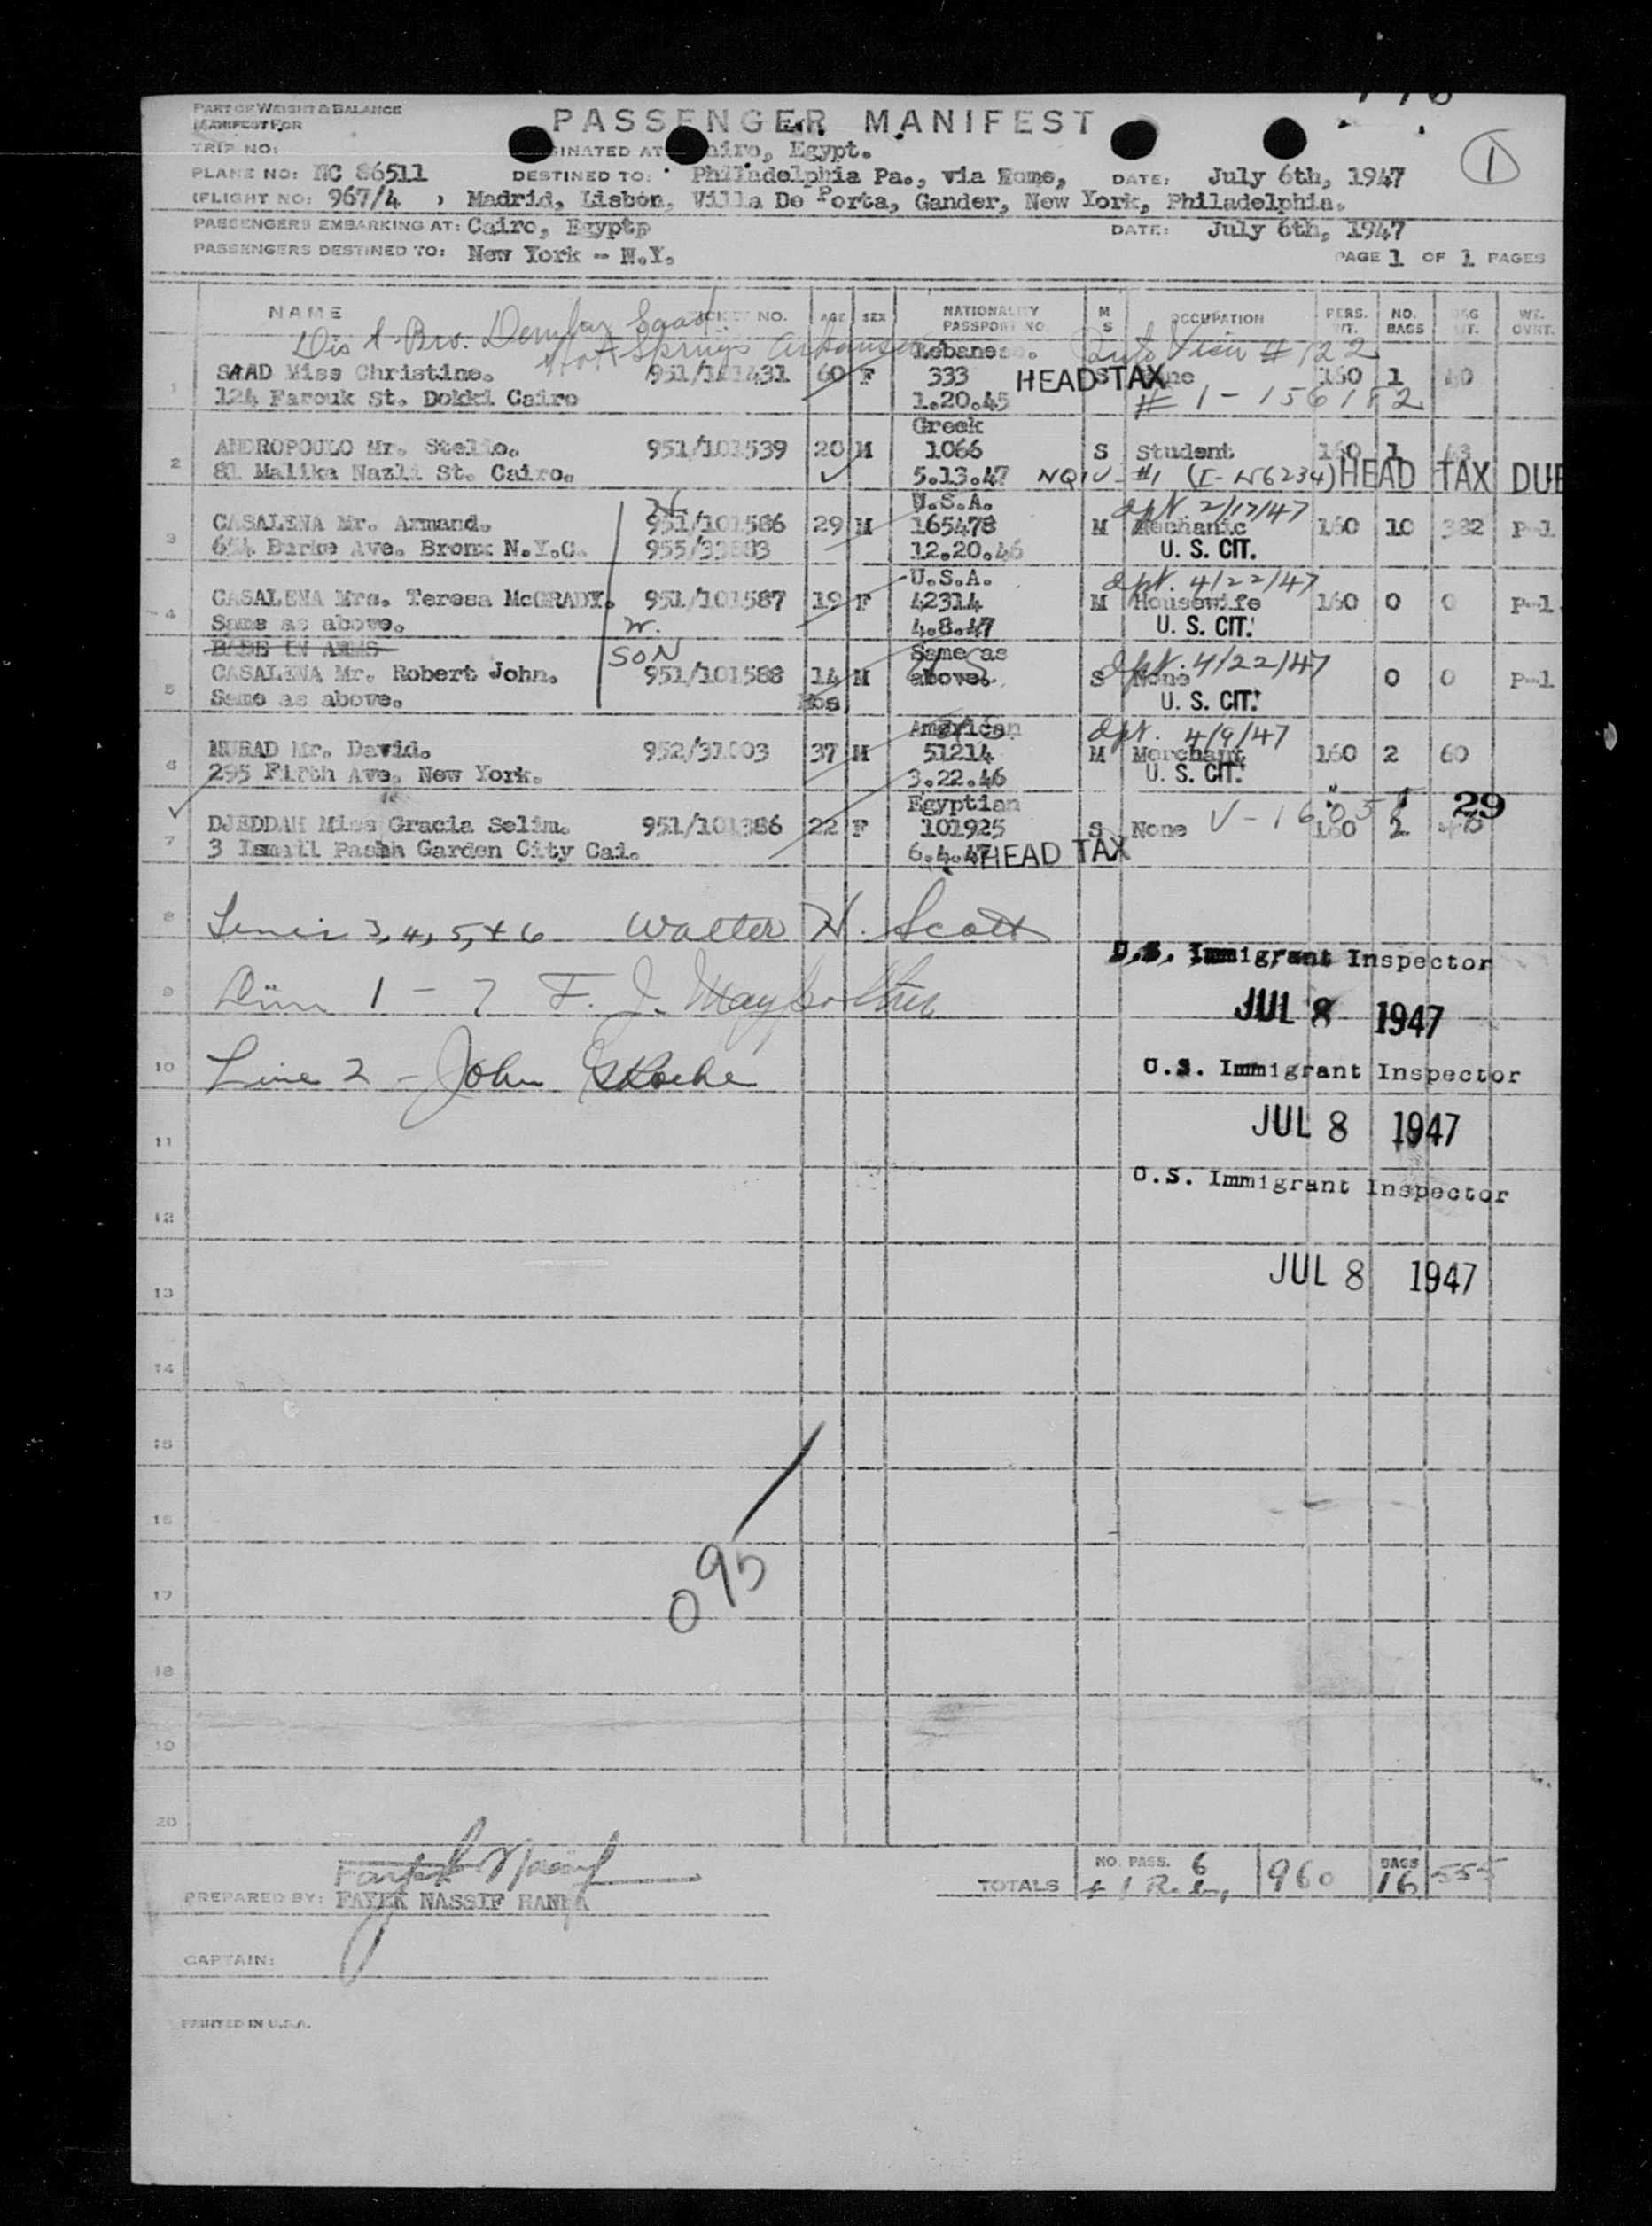 PART OF WEIGHT & BALANCE
MANIFEST FOR
PASSENGER MANIFEST
TRIP NO:
INATED AT Cairo, Egypt.
PLANE NO: NC 86511 DESTINED TO: Philadelphia Pa., via Rome, DATE: July 6th, 1947
(FLIGHT NO: 967/4 , Madrid, Lisbon, Villa De Porta, Gander, New York, Philadelphia.
PASSENGERS EMBARKING AT: Cairo, Egypt DATE: July 6th, 1947
PASSENGERS DESTINED TO: New York - N.Y. PAGE 1 OF 1 PAGES
1
NAME TICKET NO. AGE SEX NATIONALITY PASSPORT NO. M S OCCUPATION PERS. WT. NO. BAGS BAG WT. WT. OVRT.
Hot Springs Arkansas
Lebanese.
1 SAAD Miss Christine. 951/101431 60 F 333 HEAD TAX S None 160 1 40
124 Farouk St. Dokki Cairo 1.20.45 # 1-156182
Greek
2 ANDROPOULO Mr. Stelio. 951/101539 20 M 1066 S Student 160 1 43
81 Malika Nazli St. Cairo. 5.13.47 NQIV #1 (I-156234) HEAD TAX DUE
U.S.A. 2/17/47
3 CASALENA Mr. Armand. 951/101586 29 M 165478 M Mechanic 160 10 382 P-1
654 Burke Ave. Bronx N.Y.C. 955/33883 12.20.46 U. S. CIT.
U.S.A. 4/22/47
4 CASALENA Mrs. Teresa McGRADY. 951/101587 19 F 42314 M Housewife 160 0 0 P-1
Same as above. W. 4.8.47 U. S. CIT.
BABE IN ARMS SON Same as 4/22/47
5 CASALENA Mr. Robert John. 951/101588 14 M above. S None 0 0 P-1
Same as above. Mos U. S. CIT.
American 4/9/47
6 MURAD Mr. David. 952/31003 37 M 51214 M Merchant 160 2 60
295 Fifth Ave. New York. 3.22.46 U. S. CIT.
Egyptian 29
7 DJEDDAH Miss Gracia Selim. 951/101386 22 F 101925 S None 160
3 Ismail Pasha Garden City Cai. 6.4.47 HEAD TAX
8 Lines 3, 4, 5, + 6 Walter H. Scott
U.S. Immigrant Inspector
9 1 - 7 F. J.
JUL 8 1947
10 Line 2 - John
U.S. Immigrant Inspector
11
JUL 8 1947
U.S. Immigrant Inspector
12
JUL 8 1947
13
14
15
16
095
17
18
19
20
TOTALS NO. PASS. 6 960 BAGS 16 555
PREPARED BY: FAYEK NASSIF HANNA
CAPTAIN:
PRINTED IN U.S.A.